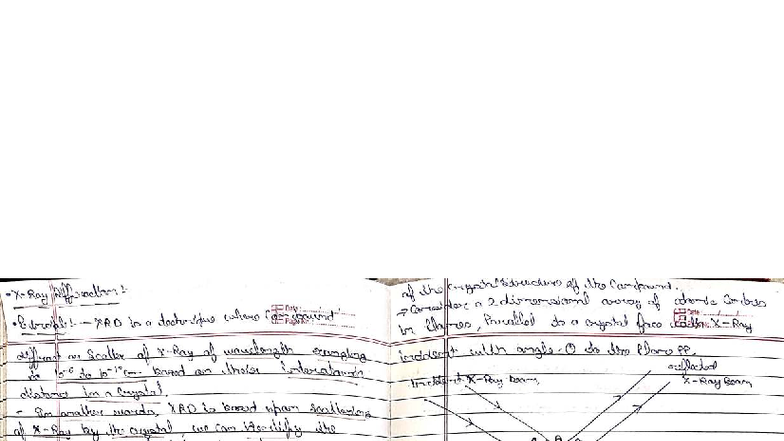 • X-Ray Diffraction :
• Principle :- XRD is a technique where compound
different or Scatter of X-Ray of wavelength
10⁻⁶ to 10⁻¹⁰ cm based on their interatomic
distance in a crystal.
- In another words, XRD is based upon scattering
of X-Ray by the crystal, we can identify the
of the crystal structure of the Compound.
→ Consider a 2 dimensional array of atoms
in Planes, Parallel to a crystal face X-Ray
incident with angle θ to the Plane PP.
Incident X-Ray beam,
reflected
X-Ray Beam